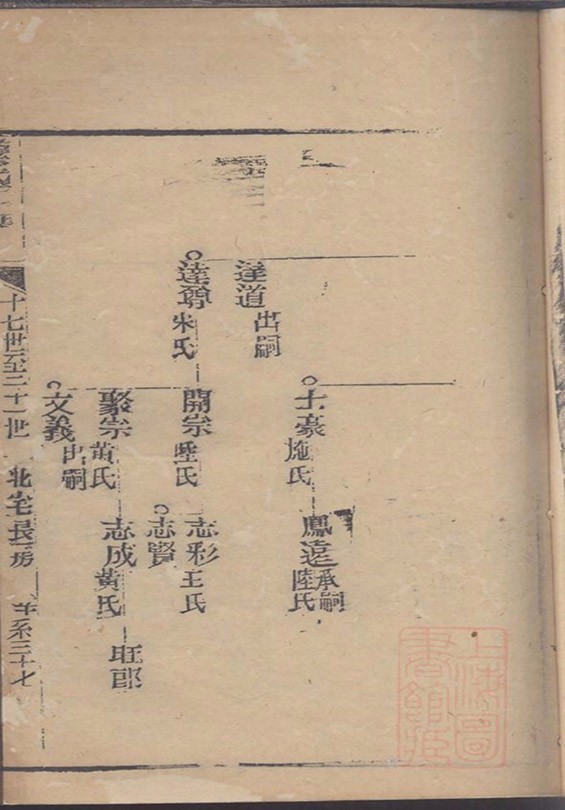 士豪
施氏
鳳遠
承嗣
陸氏
達道
出嗣
達尊
朱氏
開宗
陸氏
志彩
王氏
志賢
聚宗
黃氏
志成
黃氏
旺郎
文義
出嗣
十七世至二十一世
北宅長房
世系三十七
上海圖書館藏